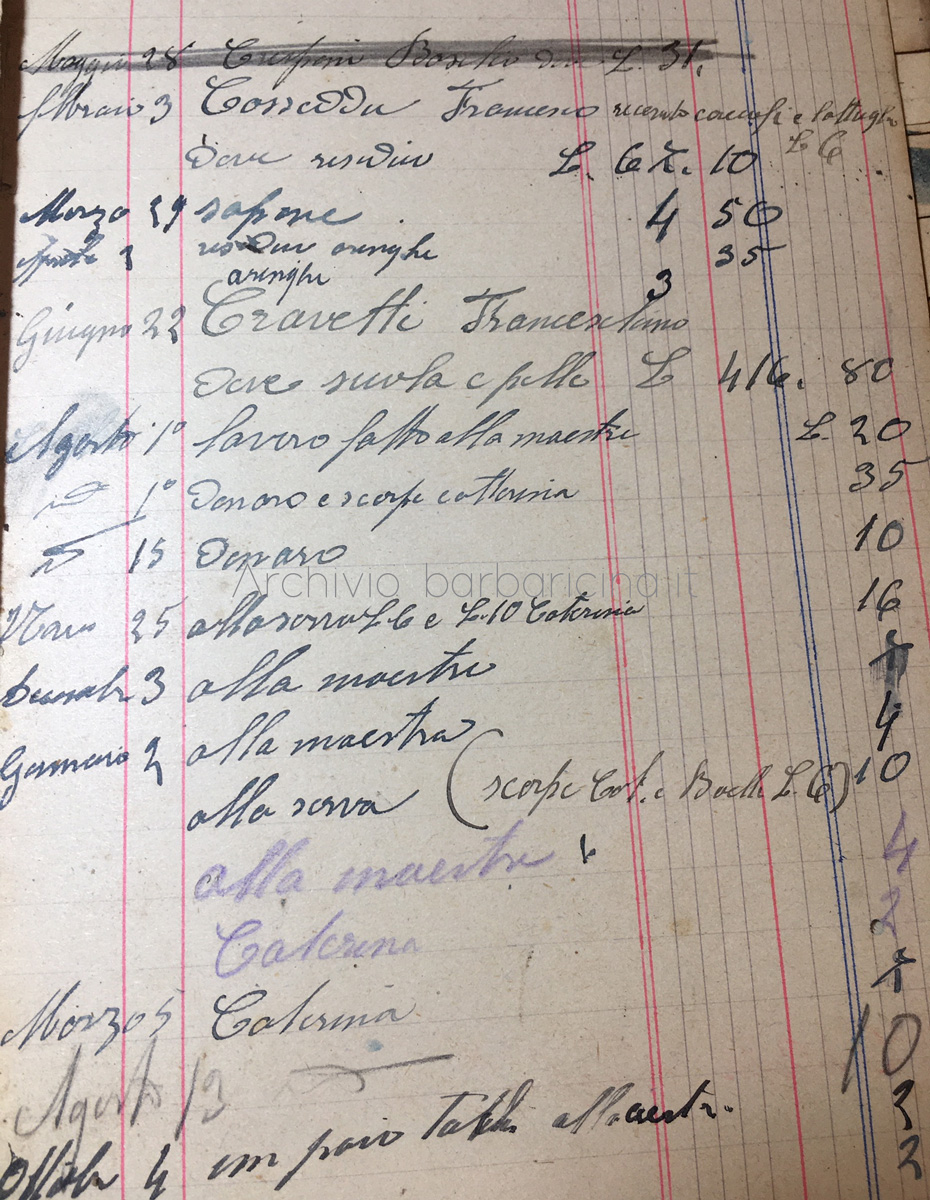 Maggio 28 Crisponi L. 31.
febbraio 3 Cosseddu Francesco ricevuto carciofi e lattughe
L 6
Deve residuo L. 67. 10
Marzo 29 sapone 4 50
Aprile 3 residuo aringhe 35
aringhe 3
Giugno 22 Cravetti
Deve suola e pelle L 416. 80
Agosto 1° lavoro fatto alla maestra L. 20
1° Denaro e scarpe catterina 35
15 Denaro 10
Archivio barbaricina.it
25 alla serva L 6 e L. 10 Caterina 16
3 alla maestra
Gennaio 2 alla maestra 4
alla serva (scarpe Cat. e L. 6) 10
alla maestra 4
Caterina 2
Marzo 5 Caterina
Agosto 13 10
Ottobre 4 un paio alla 2
2